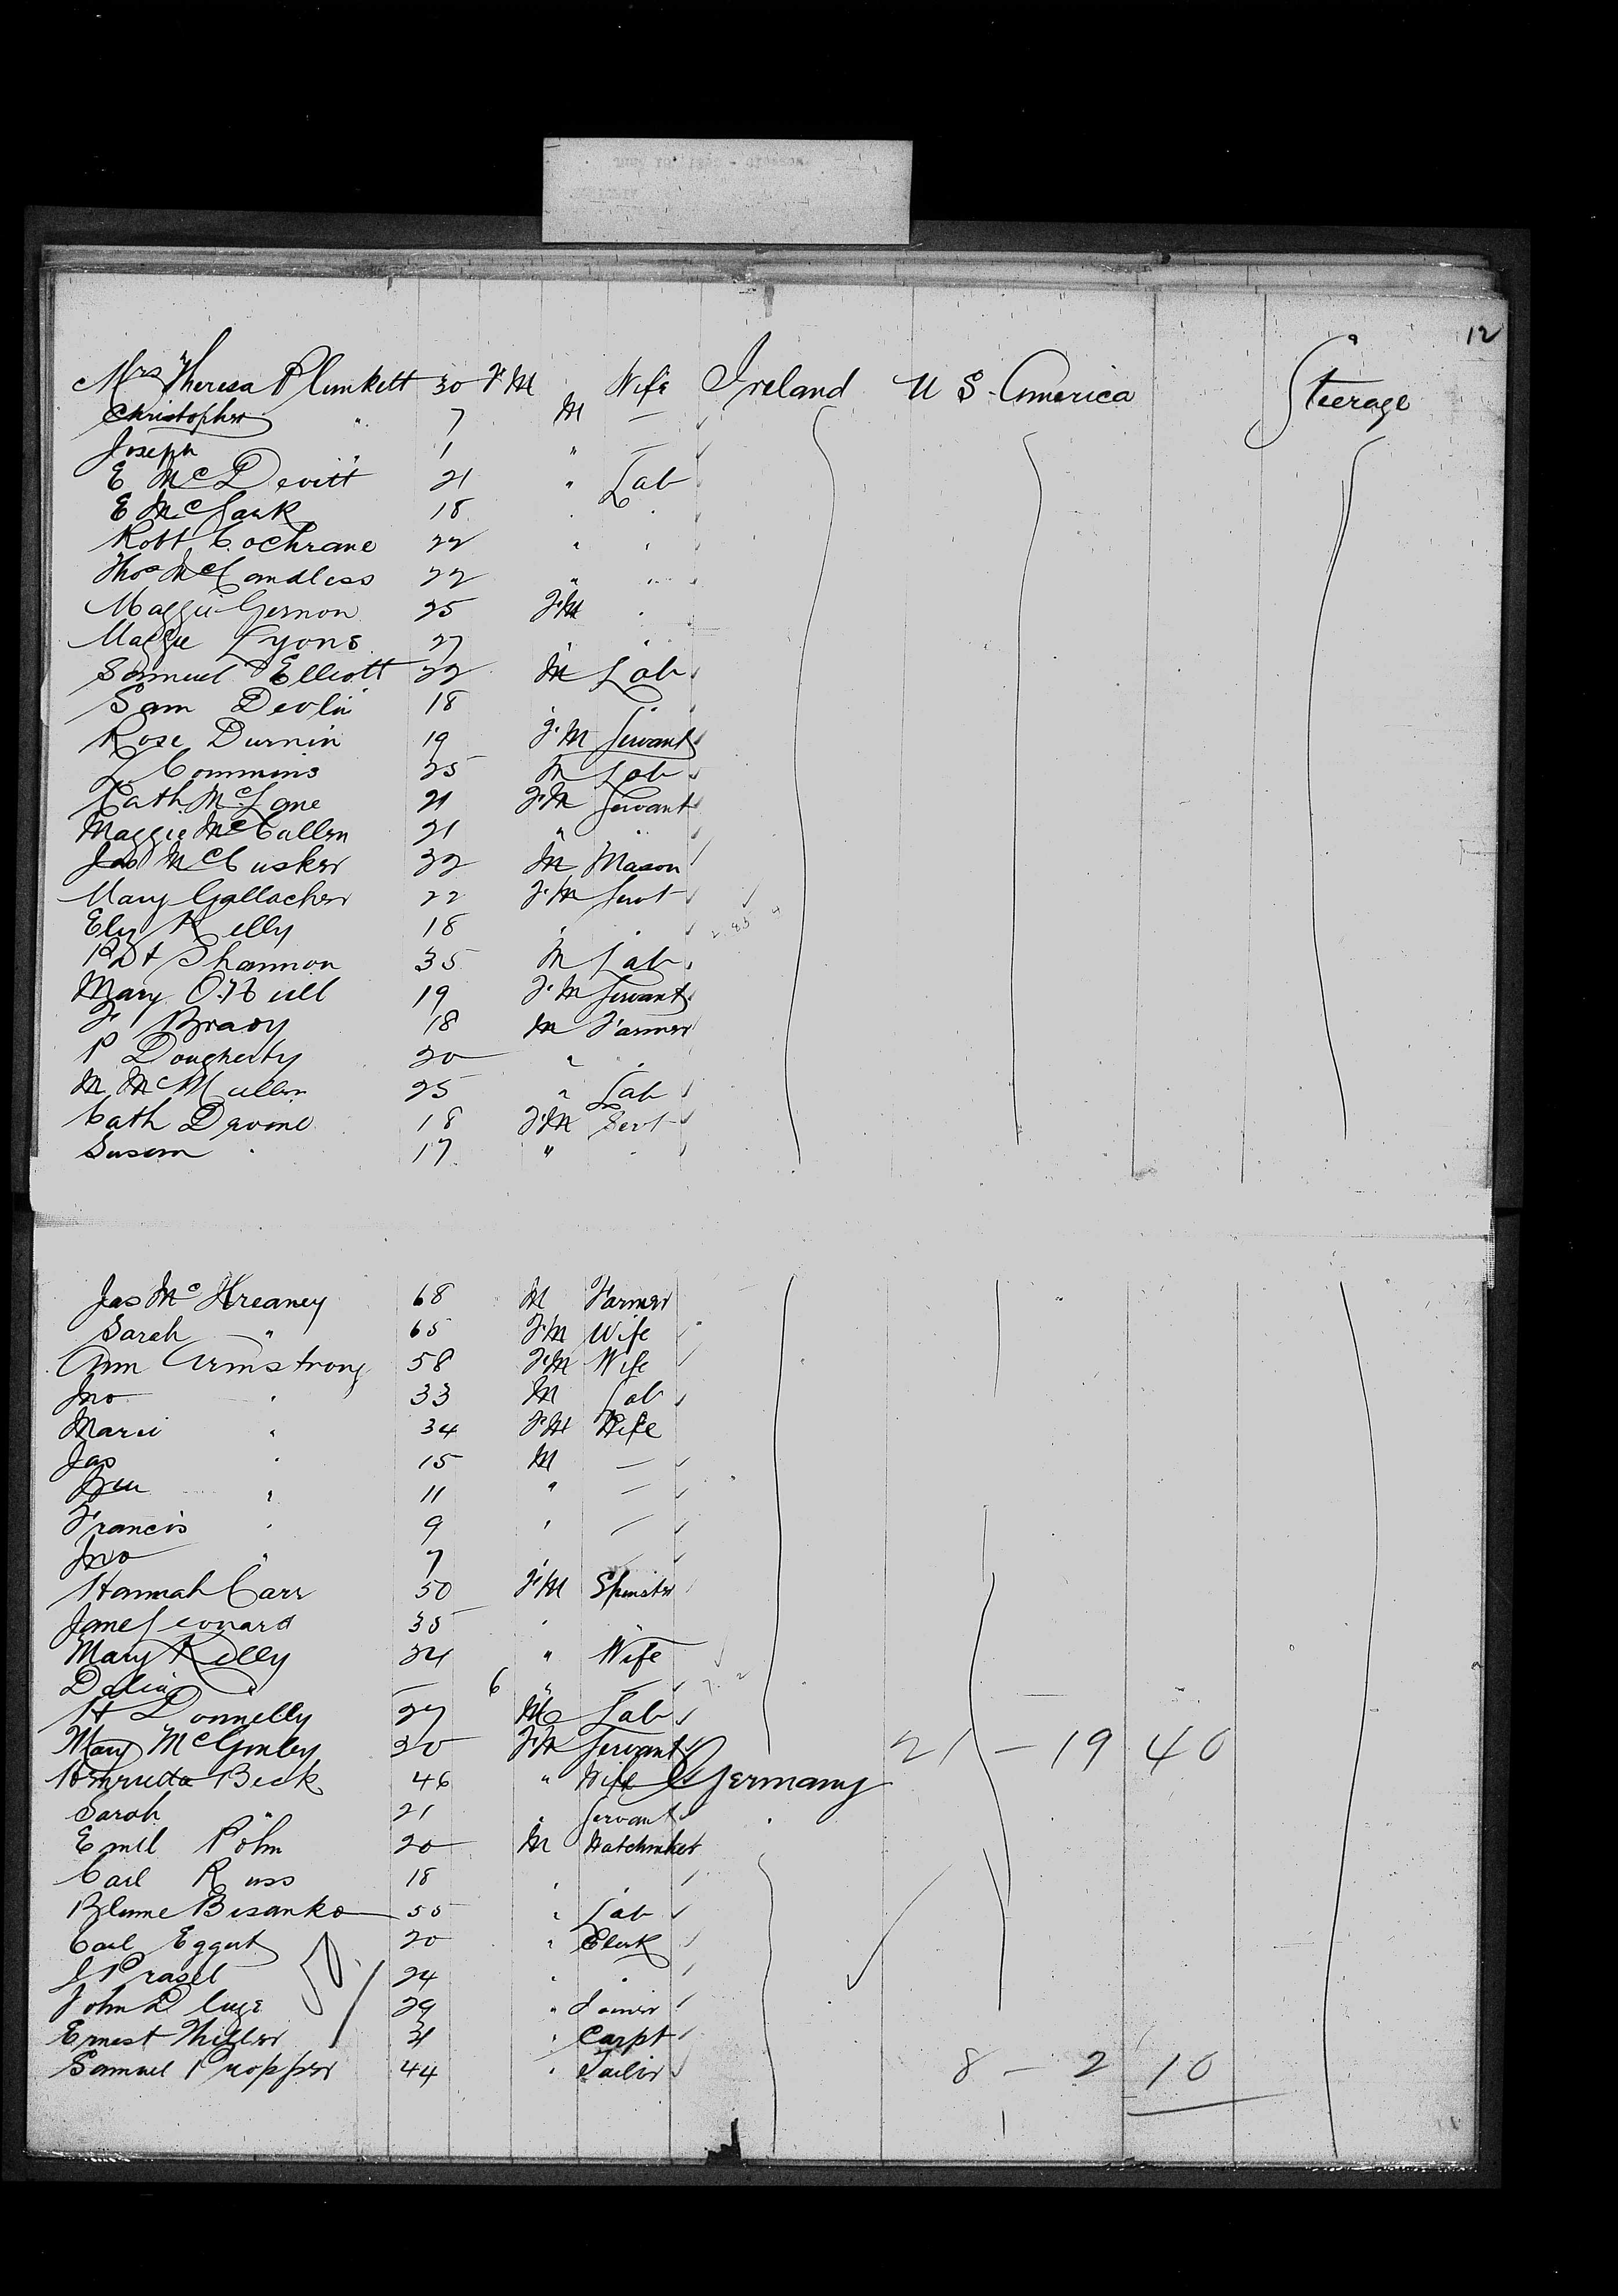 12
Mrs Theresa Plunkett 30 F M " Wife Ireland U S. America Steerage
Christopher " 7 M —
Joseph " 1 " —
E McDevitt 21 " Lab
E McGurk 18 " "
Robt Cochrane 22 " "
Thos McCandless 22 " "
Maggie Gernon 25 F.M "
Maggie Lyons 27 " "
Samuel Elliott 22 M Lab
Sam Devlin 18 " "
Rose Durnin 19 F.M Servant
Commins 25 M Lab
Cath McLane 21 F.M Servant
Maggie McCullen 21 " "
Jas McCusker 32 M Mason
Mary Gallacher 22 F.M Servt
Eliz Kelly 18 " "
Shannon 35 M Lab
Mary O'Neill 19 F.M Servant
F Brady 18 M Farmer
P Dougherty 20 " "
M McMullen 25 " Lab
Cath Devine 18 F.M Servt
Susan " 17 " "
Jas Mc 68 M Farmer
Sarah " 65 F.M Wife
Ann Armstrong 58 F.M Wife
Jno " 33 M Lab
Maria " 34 F.M Wife
Jas " 15 M —
" 11 " —
Francis " 9 " —
Jno " 7 " —
Hannah Carr 50 F.M Spinster
Jane Leonard 35 " "
Mary Kelly 24 " Wife
Delia " — 6 " —
H Donnelly 27 M Lab
Mary McGinley 20 F.M Servant 21 — 19 40
Beck 46 " Wife Germany
Sarah " 21 " Servant "
Emil Pohm 20 M Watchmker
Carl Russ 18 " "
Blume Besanko 55 " Lab
Carl Eggert 20 " Clerk
J Prasel 24 " "
John 29 " Joiner
Ernest Miller 31 " Carpt
Samuel Propper 44 " Tailor 8 — 2 10